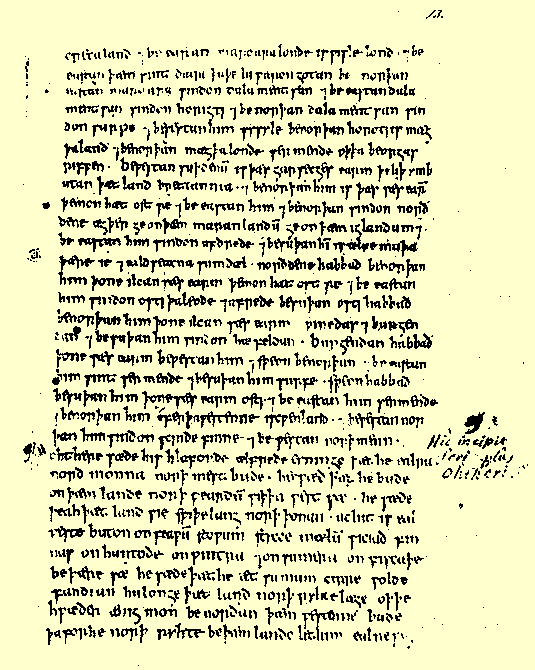 13.
creca land · ⁊ be eastan maroara londe is wisle lond · ⁊ be
eastan þam sint datia þa þe iu wæron gotan be norþan
eastan maroara sindon dala mentsan · ⁊ be eastan dala
mentsan sindon horigti ⁊ be norþan dala mentsan sin
don surpe ⁊ bewestan him sysyle benorþan horoti is mæg
þa land ⁊ benorþan mægþa londe sermende oþþa beorgas
riffen · Bewestan suþdenū is þæs garsecges earm þe liþ ymb
utan þæt land brettannia · ⁊ benorþan him is þæs sæs earm
þe mon hæt ost sæ ⁊ be eastan him ⁊ benorþan sindon norð
dene ægþer ge on þæm maran landū ge on þæm iglandum ⁊
be eastan him sindon afdrede ⁊ be suþan hī is ælfe muþa
þære ie ⁊ eald seaxna sum dæl · norðdene habbað benorþan
him þone ilcan sæs earm þe mon hæt ost sæ ⁊ be eastan
him sindon osti þa leode ⁊ afrede be suþan osti habbað
benorþan him þone ilcan sæs earm ⁊ winedas ⁊ burgen
dan ⁊ be suþan him sindon hæfeldan · Burgendan habbað
þone sæs earm bewestan him ⁊ sweon benorþan · be eastan
him sint sermende ⁊ besuþan him surfe · sweon habbað
besuþan him þone sæs earm osti ⁊ be eastan him sermende
⁊ benorþan him ofer þa westenne is cwenland · ⁊ bewestan nor
þan him sindon scride finne ⁊ be westan norþmenn ·
Ohthere sæde his hlaforde ælfrede cyninge þæt he ealra
norð monna norþ mest bude · he cwæð þæt he bude
on þæm lande norþ weardū wiþ þa west sæ · he sæde
þeah þæt land sie swiþe lang norþ þonan · ac hit is eal
weste buton on feawū stowum sticce mælū wiciað fin
nas on huntoðe on wintra ⁊ on sumera on fiscaþe
be þære sæ he sæde þæt he æt sumum cirre wolde
fandian hu longe þæt land norþ ryhte læge oþþe
hwæðer ænig mon be norðan þæm westenne bude
þa for he norþ ryhte be þæm lande let him ealne
Hic incipit
Periplus
Ohtheri.